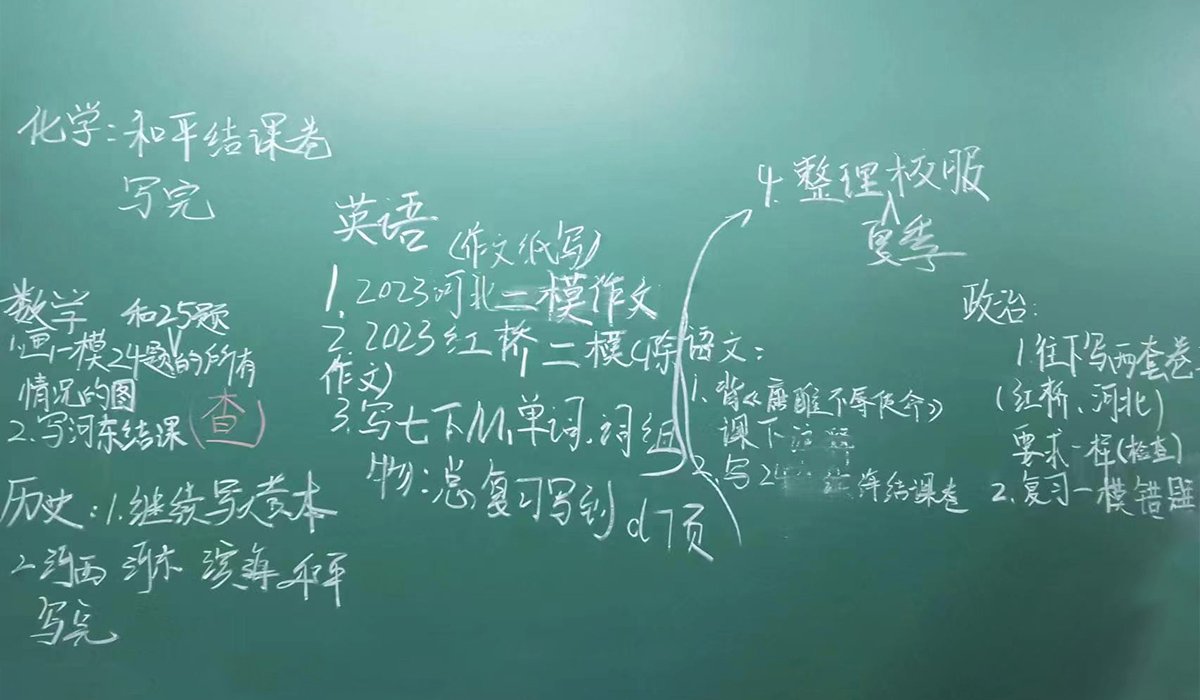 化学：和平结课卷
写完
数学 和25题
1.画一模24题的所有
情况的图
2.写河东结课（查）
历史：1.继续写大本
2.河西 河东 滨海 和平
写完
英语
（作文纸写）
1.2023河北二模作文
2.2023红桥二模（除
作文）
3.写七下M1单词、词组
4.整理校服
夏季
物：总复习写到 717页
语文：
1.背《唐雎不辱使命》
课下注释
2.写24 结课卷
政治：
1.往下写两套卷
（红桥、河北）
要求一样（检查）
2.复习一模错题